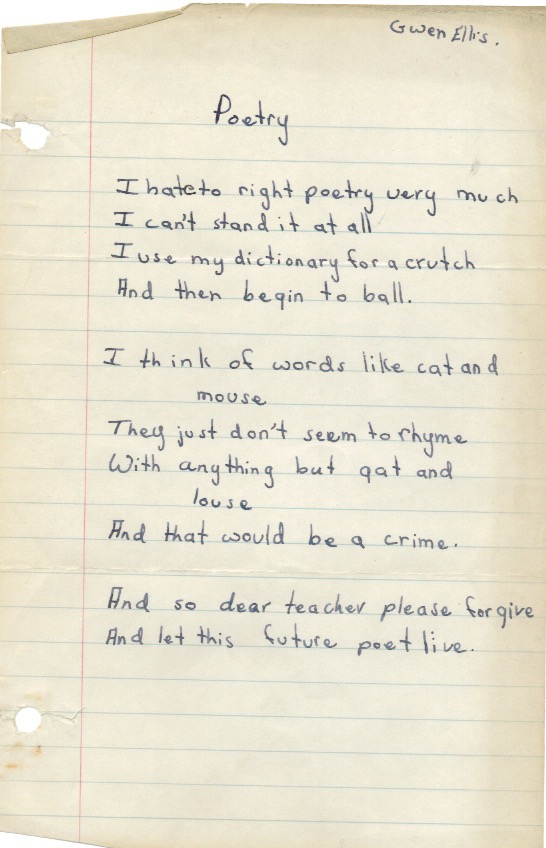 Gwen Ellis.
Poetry
I hate to right poetry very much
I can't stand it at all
I use my dictionary for a crutch
And then begin to ball.
I think of words like cat and
mouse
They just don't seem to rhyme
With anything but qat and
louse
And that would be a crime.
And so dear teacher please forgive
And let this future poet live.